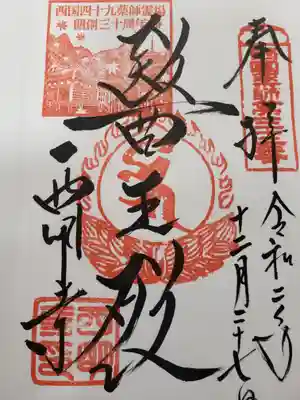 奉拝
令和二年
十二月二十七日
西国四十九薬師霊場
開創三十周年
醫王殿
西明寺